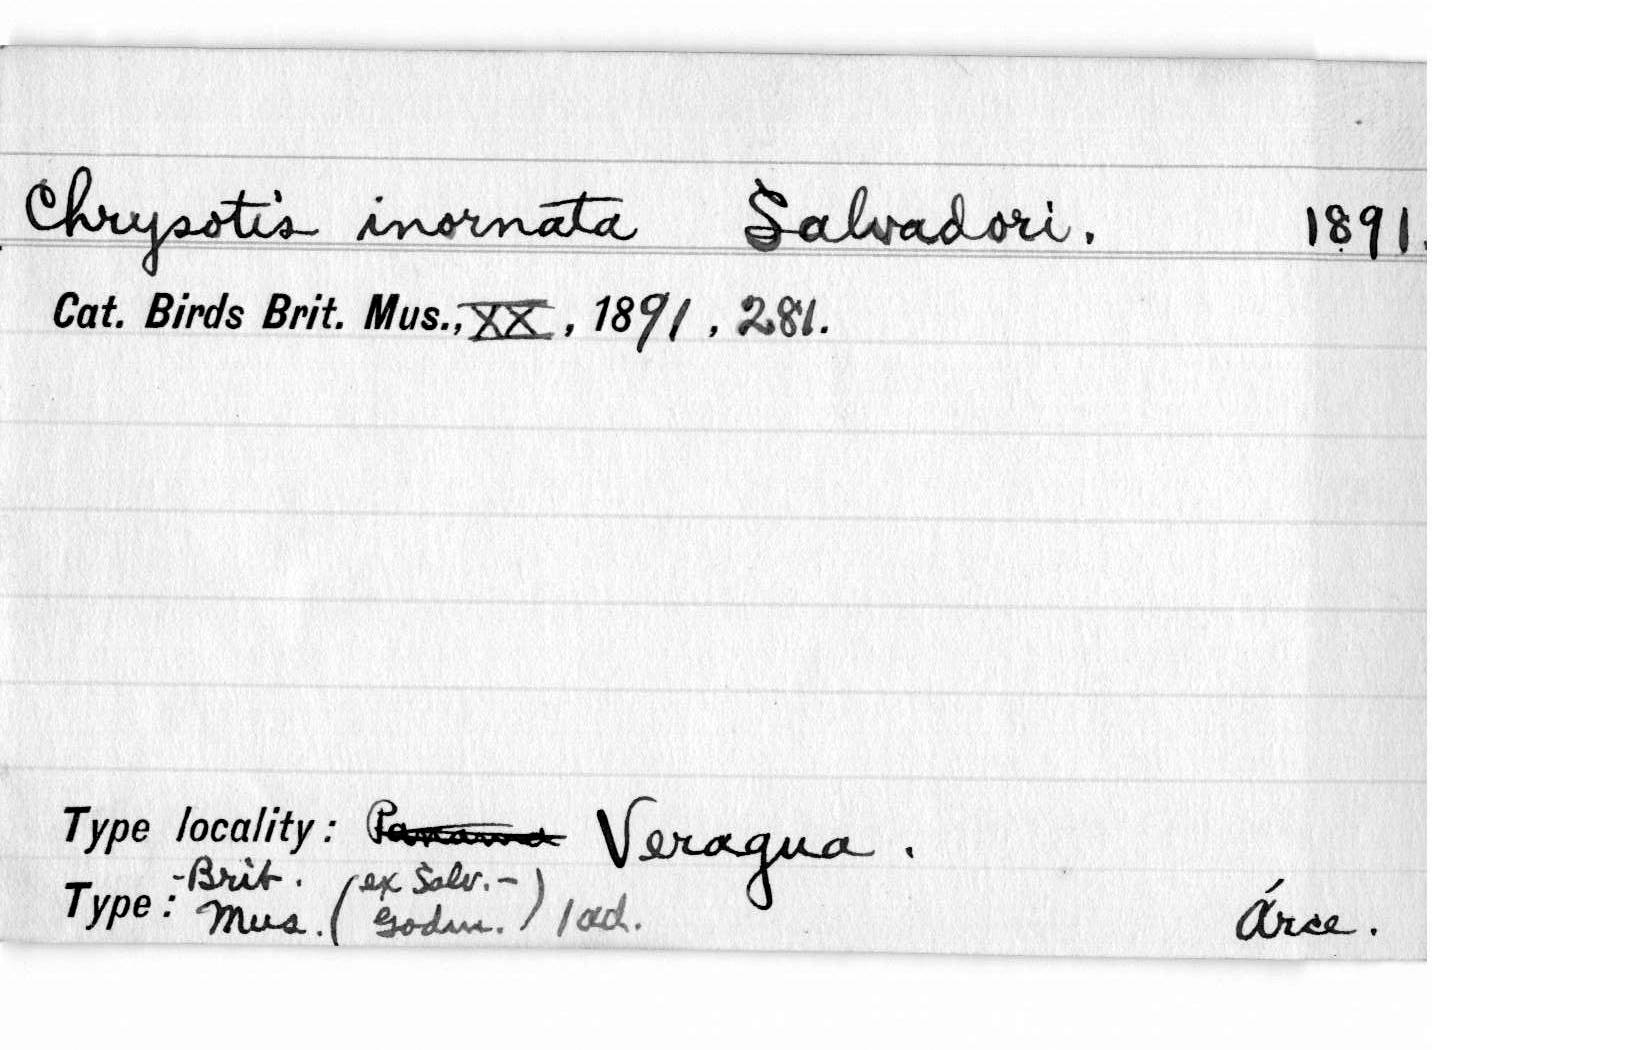 Chrysotis inornata Salvadori. 1891.
Cat. Birds Brit. Mus., XX, 1891, 281.
Type locality: Panama Veragua.
Type: Brit. Mus. (ex Salv.-Godm.) 1 ad. Árce.